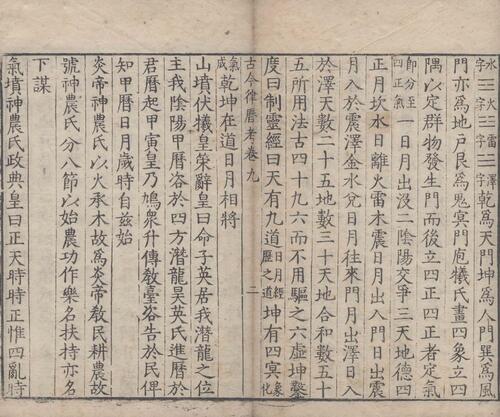 水字 火字 雷字 澤字 乾爲天門坤爲人門巽爲風
門亦爲地戸艮爲鬼冥門庖犧氏畫四象立四
隅以定群物發生門而後立四正四正者定氣
即分至四正氣 一日月出沒二陰陽交爭三天地德四
正月坎水日離火雷木震日月出入門日出震
月入於震澤金水兌日月往來門月出澤日入
於澤天數二十五地數三十天地合和數五十
五所用法古四十九六而不用驅之六虛坤鑿
度曰制靈經曰天有九道日月經歷之道坤有四冥象化
古今律曆考卷九 二
氣成乾坤在道日月相將
山墳伏犧皇榮辭皇曰命子英居我潛龍之位
主我陰陽甲曆咨於四方潛龍昊英氏進曆於
君曆起甲寅皇乃鳩衆升傳敎臺咨告於民俾
知甲曆日月歲時自茲始
炎帝神農氏以火承木故爲炎帝敎民耕農故
號神農氏分八節以始農功作樂名扶持亦名
下謀
氣墳神農氏政典皇曰正天時時正惟四亂時